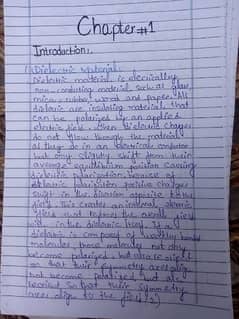 Chapter #1
Introduction:
Dielectric Material:
Dielectric material is electrically
non-conducting material such as glass
mica, rubber, wood and paper. All
dielectric are insulating materials that
can be polarized by an applied
electric field. When dielectric charges
do not flow through the material
as they do in an electrical conductor
but only slightly shift from their
average equilibrium position causing
dielectric polarization. because of
dielectric polarization positive charges
in the direction opposite to the
field. This creates an internal electric
field and reduces the overall field
in the dielectric itself. If a
dielectric is composed of weakly bonded
molecules, those molecules not only
become polarized, but also
so that their symmetry axes align
not become polarized but also
so that their symmetry
axes align to the field.